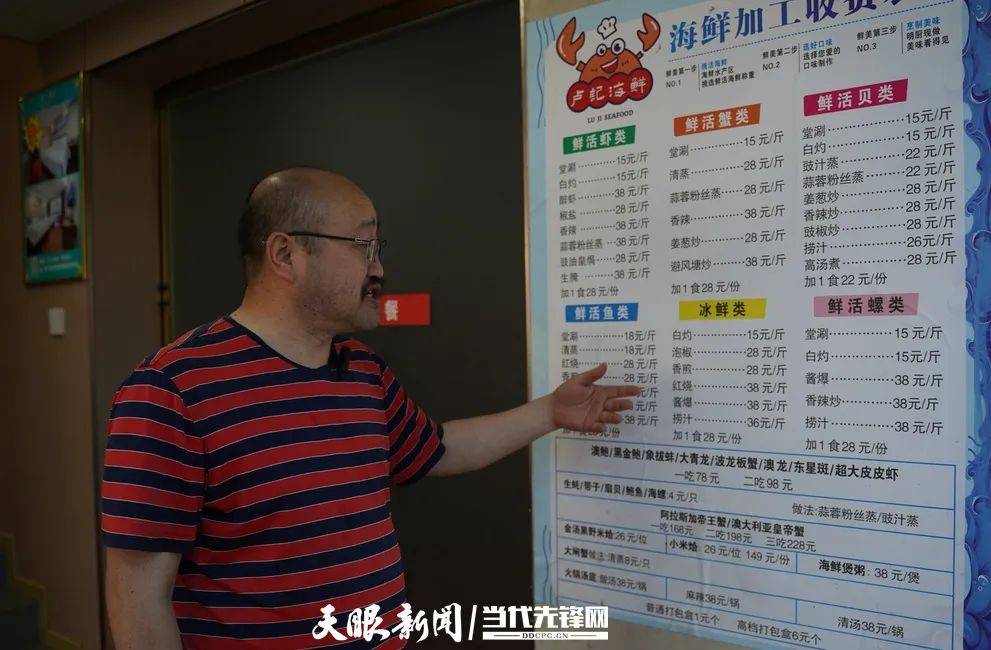 海鲜加工收费
鲜美第一步 NO.1
挑活海鲜
海鲜水产区
挑选鲜活海鲜称重
鲜美第二步 NO.2
选好口味
选择您爱的
口味制作
鲜美第三步 NO.3
烹制美味
明厨现做
美味看得见
卢記海鲜
LU JI SEAFOOD
鲜活虾类
堂涮 15元/斤
白灼 15元/斤
醉虾 38元/斤
椒盐 28元/斤
香辣 38元/斤
蒜蓉粉丝蒸 38元/斤
豉油皇焗 28元/斤
生腌 38元/斤
加1食28元/份
鲜活蟹类
堂涮 15元/斤
清蒸 28元/斤
蒜蓉粉丝蒸 28元/斤
香辣 38元/斤
姜葱炒 28元/斤
避风塘炒 38元/斤
加1食28元/份
鲜活贝类
堂涮 15元/斤
白灼 15元/斤
豉汁蒸 22元/斤
蒜蓉粉丝蒸 22元/斤
姜葱炒 28元/斤
香辣炒 28元/斤
豉椒炒 28元/斤
捞汁 26元/斤
高汤煮 28元/斤
加1食22元/份
鲜活鱼类
堂涮 18元/斤
清蒸 18元/斤
红烧 28元/斤
28元/斤
元/斤
元/斤
28元/份
冰鲜类
白灼 15元/斤
泡椒 28元/斤
香煎 28元/斤
红烧 38元/斤
酱爆 38元/斤
捞汁 36元/斤
加1食28元/份
鲜活螺类
堂涮 15元/斤
白灼 15元/斤
酱爆 38元/斤
香辣炒 38元/斤
捞汁 38元/斤
加1食28元/份
澳鲍/黑金鲍/象拔蚌/大青龙/波龙板蟹/澳龙/东星斑/超大皮皮虾
一吃78元 二吃98元
生蚝/带子/扇贝/鲍鱼/海螺:4元/只
做法:蒜蓉粉丝蒸/豉汁蒸
阿拉斯加帝王蟹/澳大利亚皇帝蟹
一吃168元 二吃198元 三吃228元
金汤黑野米烩 26元/位
小米烩 26元/位 149元/份
大闸蟹做法:清蒸8元/只
海鲜煲粥:38元/煲
火锅汤底:做汤38元/锅
麻辣38元/锅
清汤38元/锅
普通打包盒1元个 高档打包盒6元个
餐
天眼新闻 当代先锋网
DDCPC.CN